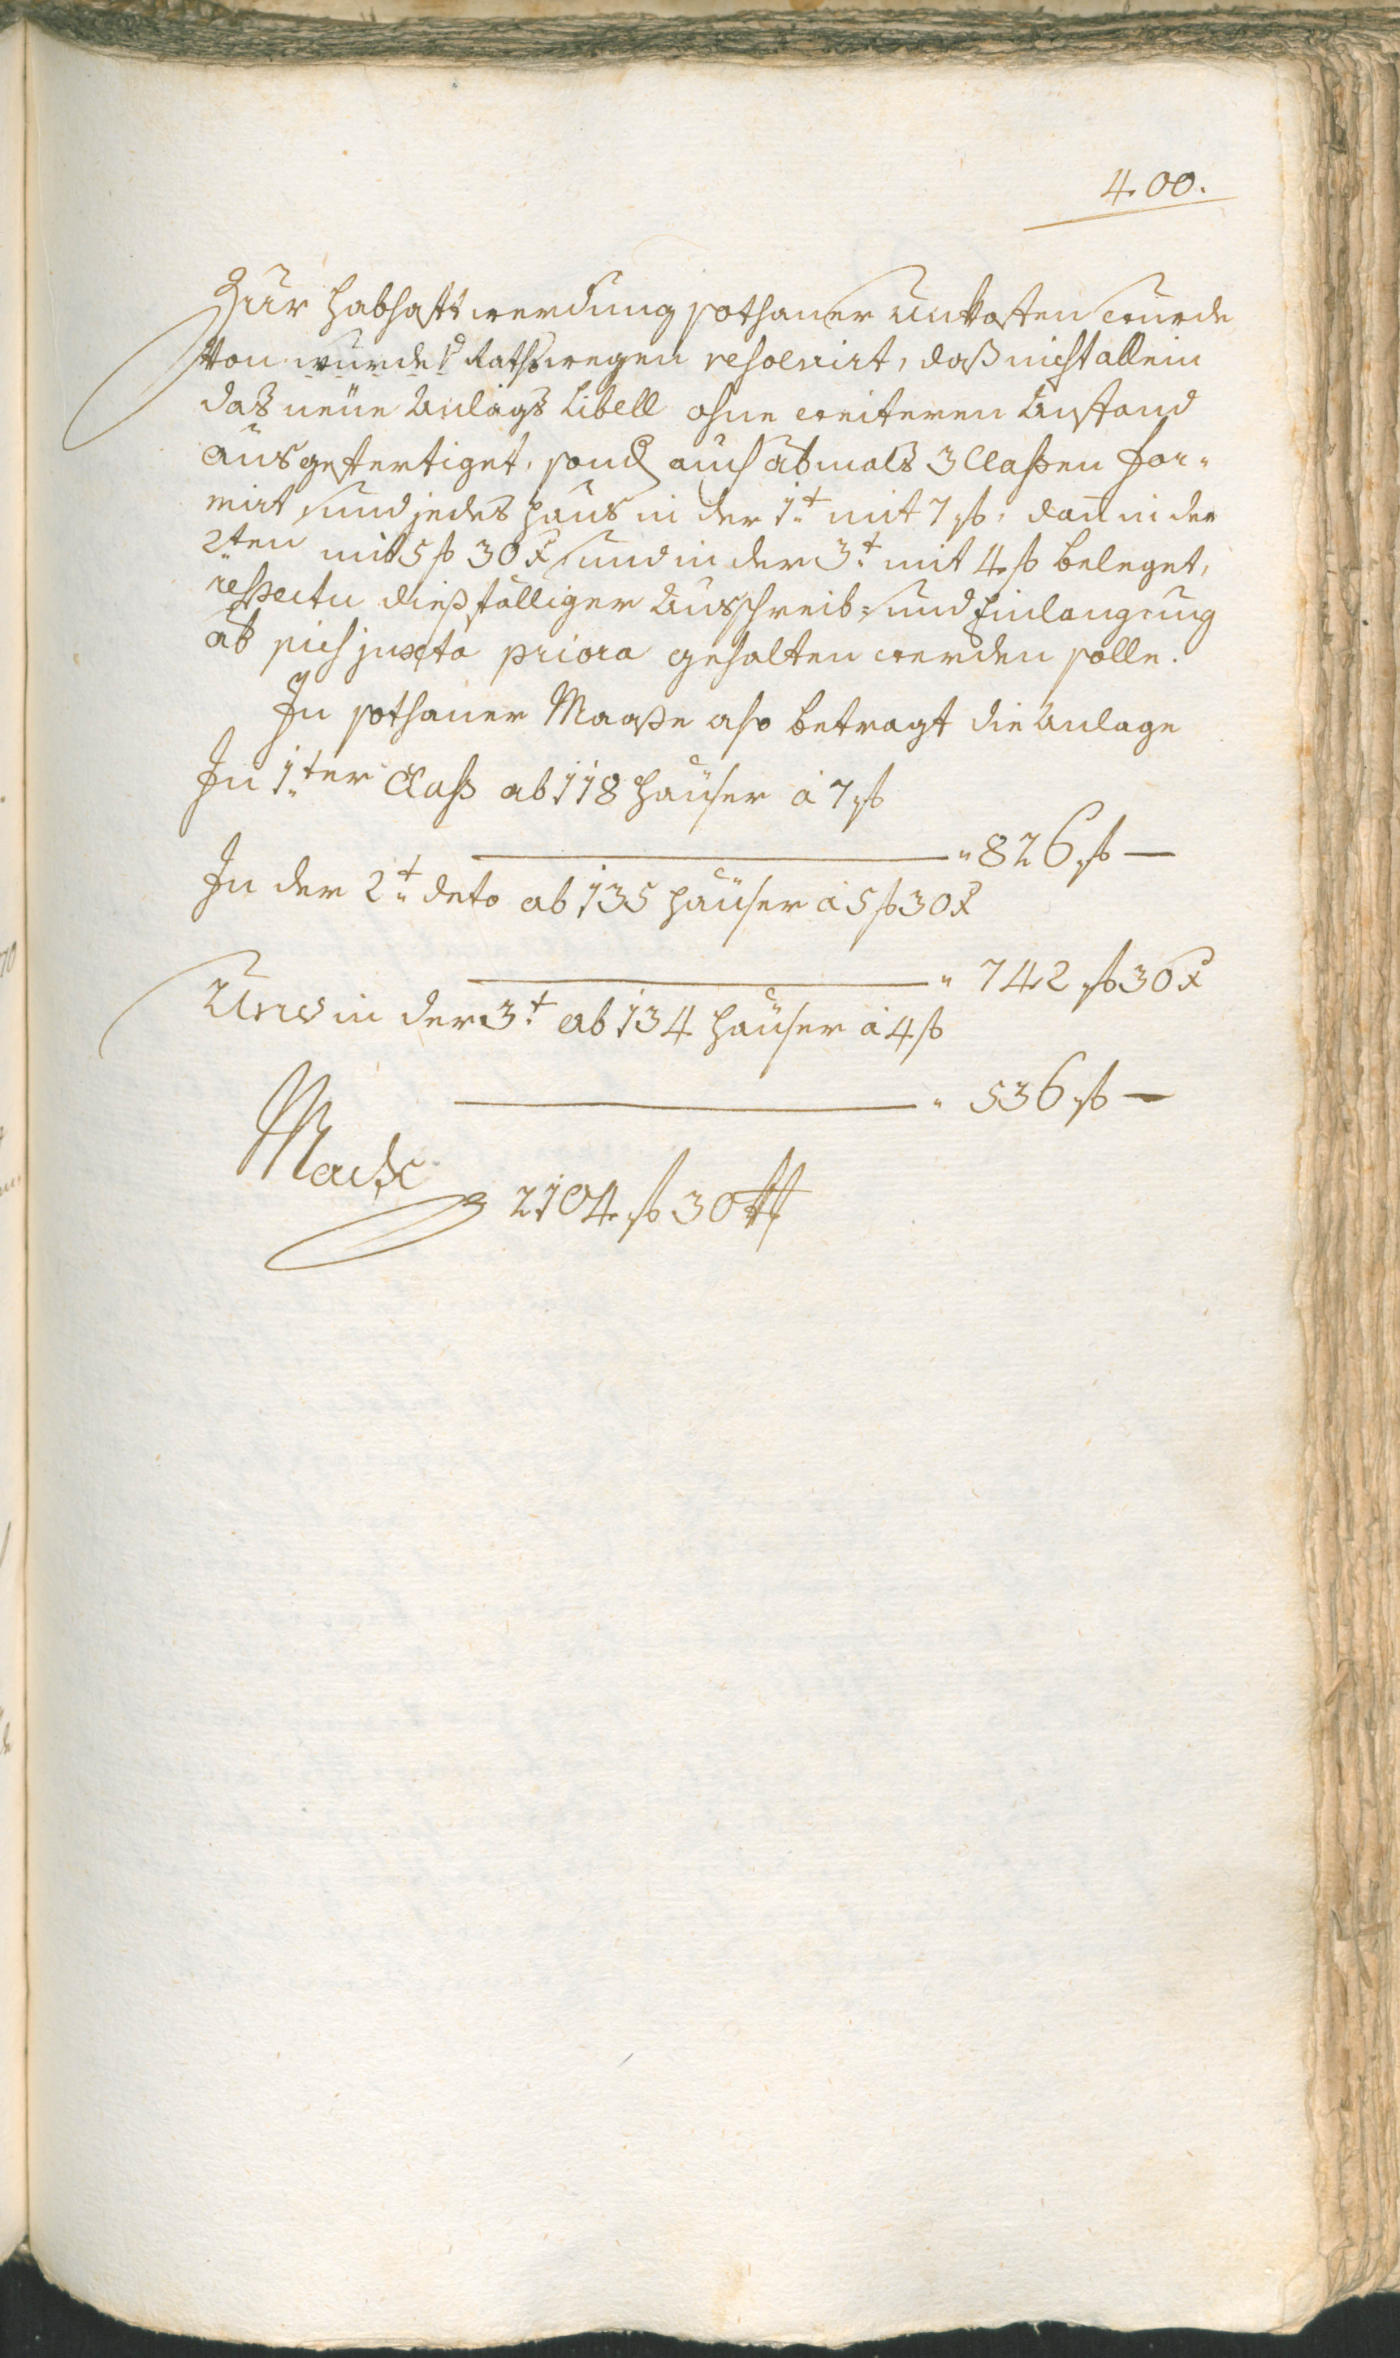 400.
Zur habhafft werdung sothaner Unkosten wurde
von wurde Rathswegen resolvirt, daß nicht allein
das neüe Anlags Libell ohne weiteren Anstand
ausgefertiget, sond auch abmals 3 Classen for-
mirt und jedes Haus in der 1t mit 7 f, dan in der
2ten mit 5 f 30 x und in der 3t mit 4 f beleget,
respectu dießfälliger Ausschreib- und Einlangung
ab sich juxta priora gehalten werden solle.
In sothaner Maaße also betragt die Anlage
In 1ter Class ab 118 Häuser à 7 f
826 f —
In der 2t deto ab 135 Häuser à 5 f 30 x
742 f 30 x
Und in der 3t ab 134 Häuser à 4 f
536 f —
Macht
2104 f 30 x